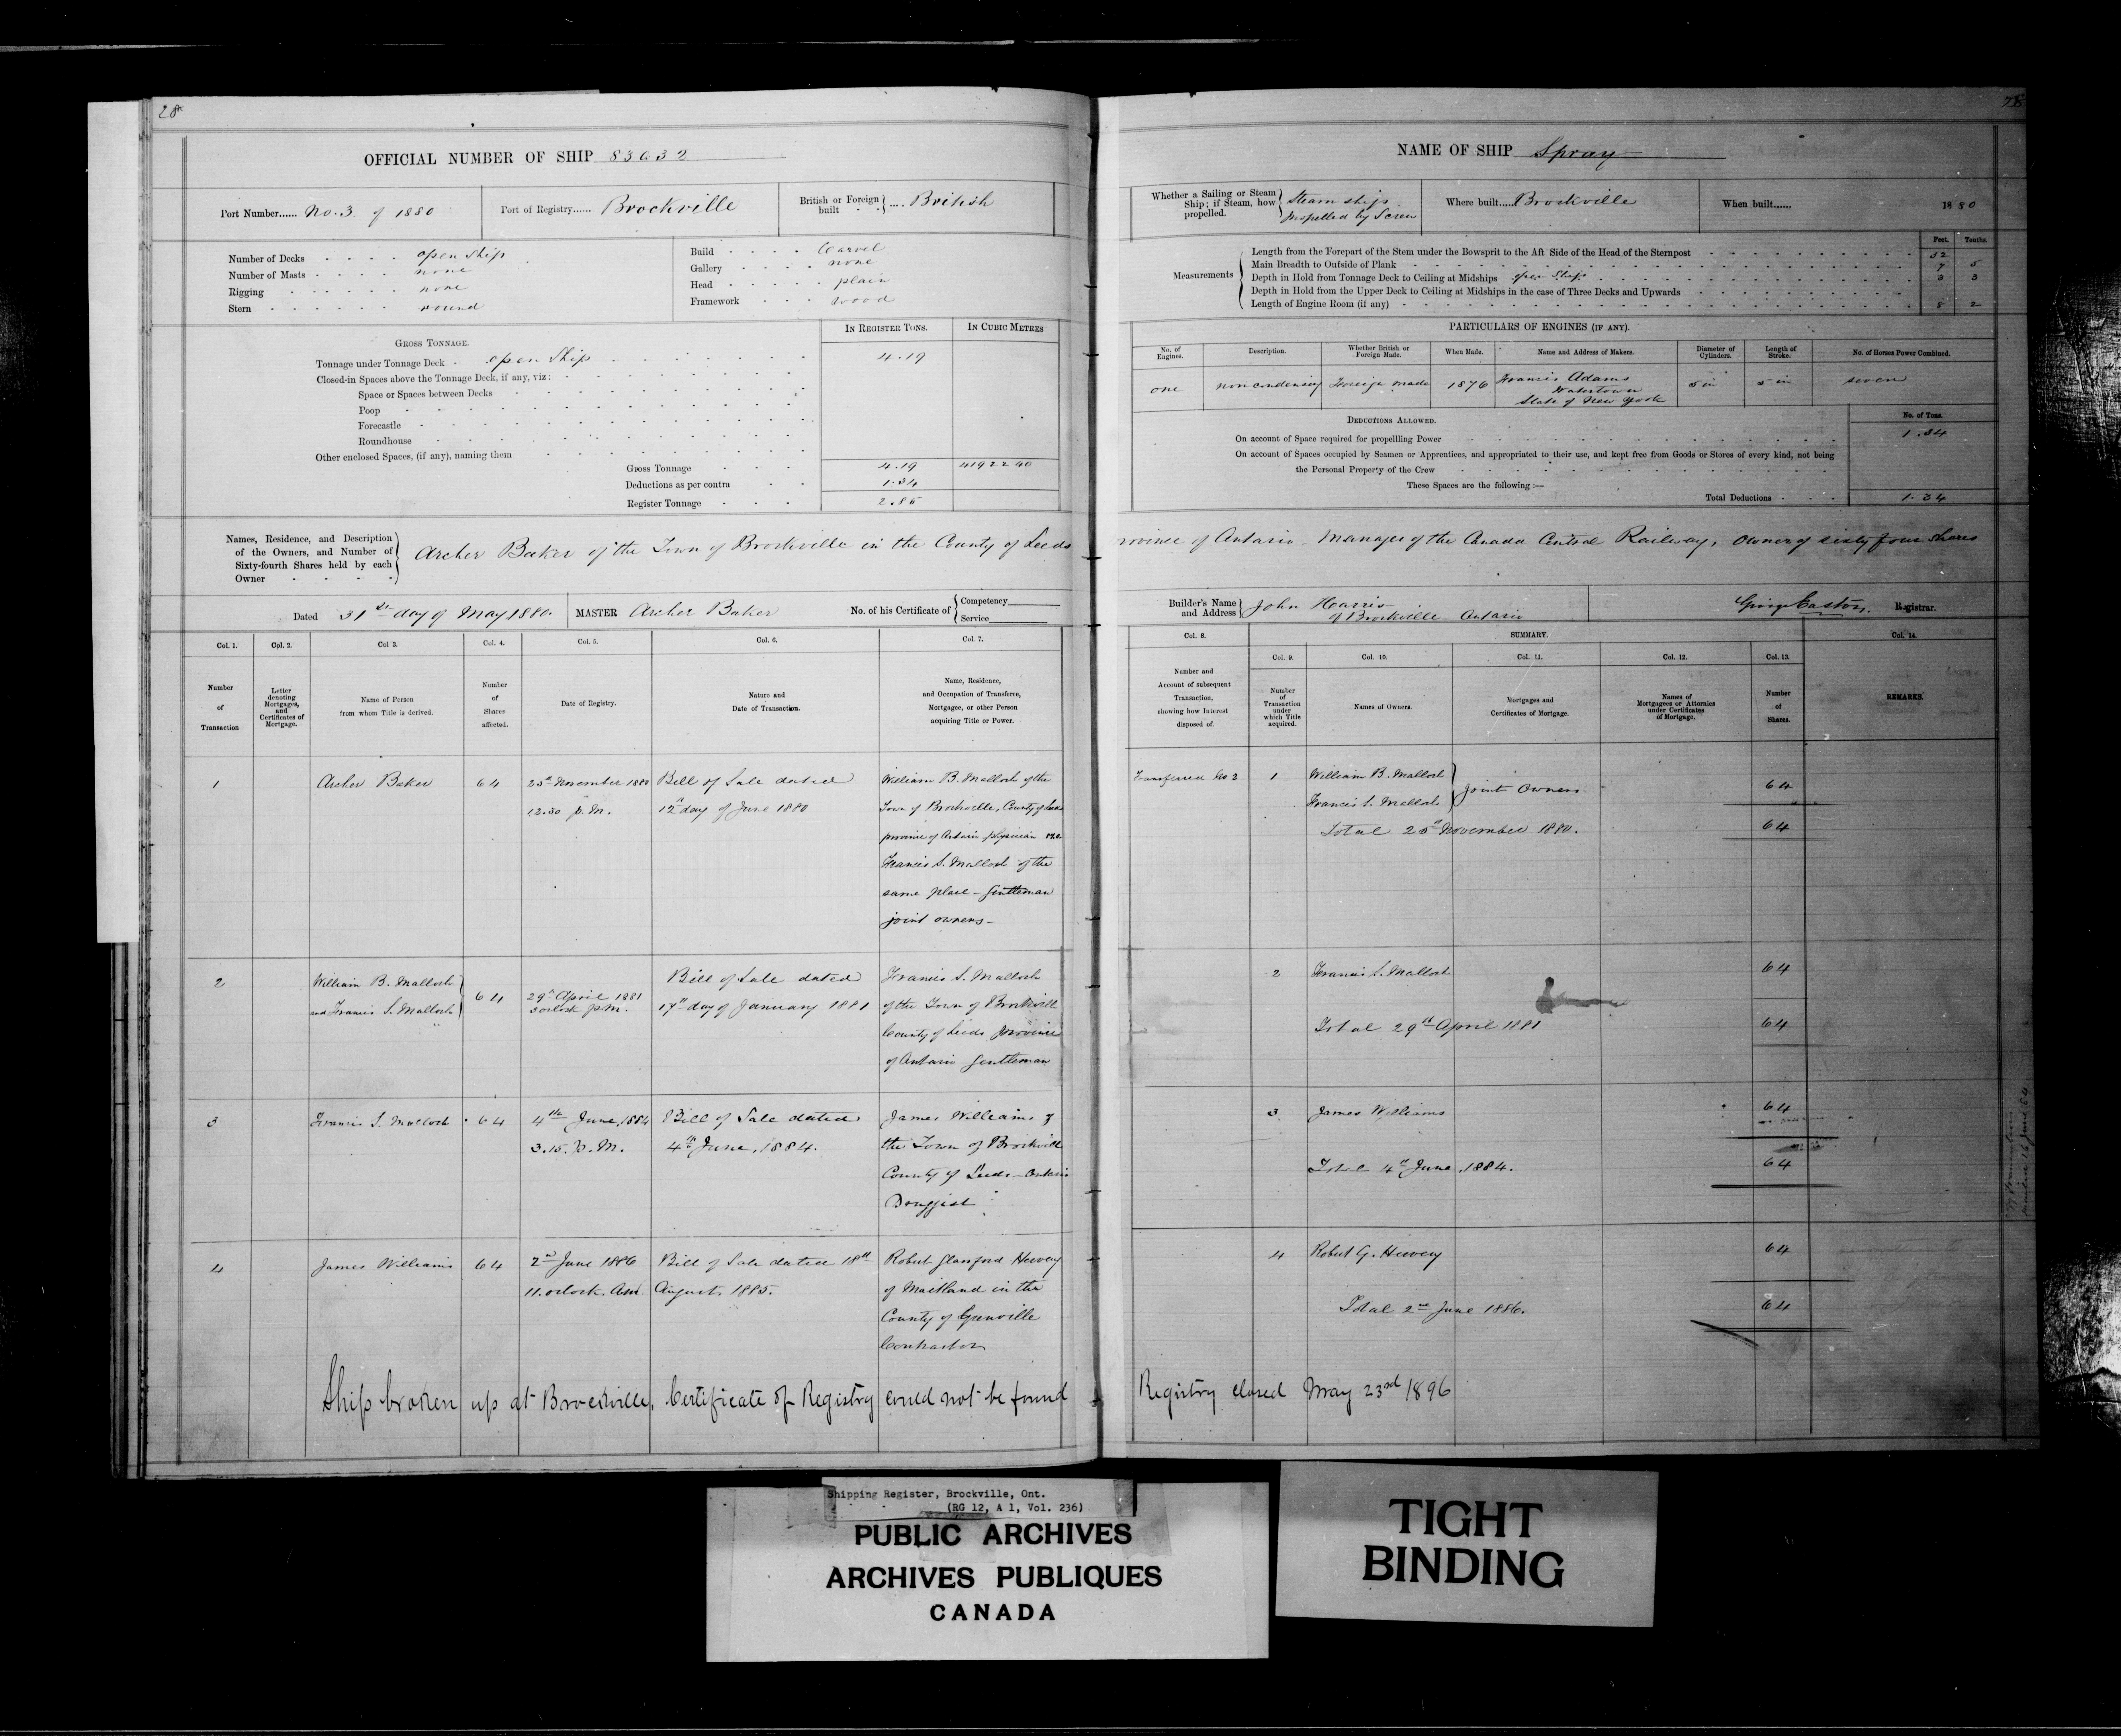 28
OFFICIAL NUMBER OF SHIP 83032
Port Number...... No. 3 of 1880
Port of Registry...... Brockville
British or Foreign built .... British
Number of Decks open Ship
Number of Masts none
Rigging none
Stern round
Build Carvel
Gallery none
Head plain
Framework wood
GROSS TONNAGE.
IN REGISTER TONS.
IN CUBIC METRES
Tonnage under Tonnage Deck open Ship 4.19
Closed-in Spaces above the Tonnage Deck, if any, viz:
Space or Spaces between Decks
Poop
Forecastle
Roundhouse
Other enclosed Spaces, (if any), naming them
Gross Tonnage 4.19
Deductions as per contra 1.34
Register Tonnage 2.85
Names, Residence, and Description
of the Owners, and Number of
Sixty-fourth Shares held by each
Owner
Archer Baker of the Town of Brockville in the County of Leeds
Dated 31st day of May 1880.
MASTER Archer Baker
No. of his Certificate of
Competency
Service
Col. 1. Col. 2. Col 3. Col. 4. Col. 5. Col. 6. Col. 7.
Number of Transaction
Letter denoting Mortgages, and Certificates of Mortgage.
Name of Person from whom Title is derived.
Number of Shares affected.
Date of Registry.
Nature and Date of Transaction.
Name, Residence, and Occupation of Transferee, Mortgagee, or other Person acquiring Title or Power.
1 Archer Baker 64 25th November 1880 Bill of Sale dated William B. Malloch of the
12.30 p.m. 12th day of June 1880 Town of Brockville, County of Leeds
province of Ontario physician and
Francis S. Malloch of the
same place - Gentleman
joint owners -
2 William B. Malloch Bill of Sale dated Francis S. Malloch
and Francis S. Malloch 64 29th April 1881 17th day of January 1881 of the Town of Brockville
3 oclock p.m. County of Leeds province
of Ontario Gentleman
3 Francis S. Malloch 64 4th June, 1884 Bill of Sale dated James Williams of
3.15. p.M. 4th June, 1884. the Town of Brockville
County of Leeds - Ontario
Druggist
4 James Williams 64 2nd June 1886 Bill of Sale dated 18th Robert Glanford Hervey
11. oclock. Am August. 1885. of Maitland in the
County of Grenville
Contractor
Ship broken up at Brockville, Certificate of Registry could not be found
28
NAME OF SHIP Spray
Whether a Sailing or Steam Ship; if Steam, how propelled.
Steam ship
propelled by Screw
Where built..... Brockville
When built...... 1880
Measurements
Feet. Tenths.
Length from the Forepart of the Stem under the Bowsprit to the Aft Side of the Head of the Sternpost 32
Main Breadth to Outside of Plank 7 5
Depth in Hold from Tonnage Deck to Ceiling at Midships open Ships 3 3
Depth in Hold from the Upper Deck to Ceiling at Midships in the case of Three Decks and Upwards
Length of Engine Room (if any) 8 2
PARTICULARS OF ENGINES (IF ANY).
No. of Engines.
Description.
Whether British or Foreign Made.
When Made.
Name and Address of Makers.
Diameter of Cylinders.
Length of Stroke.
No. of Horses Power Combined.
one non condensing Foreign made 1876 Francis Adams
Watertown
State of New York
5 in 5 in seven
DEDUCTIONS ALLOWED.
No. of Tons.
On account of Space required for propellling Power 1.34
On account of Spaces occupied by Seamen or Apprentices, and appropriated to their use, and kept free from Goods or Stores of every kind, not being
the Personal Property of the Crew
These Spaces are the following :—
Total Deductions 1.34
rovince of Ontario - Manager of the Canada Central Railway, Owner of sixty four Shares
Builder's Name and Address
John Harris
of Brockville Ontario
George Easton, Registrar.
Col. 8. SUMMARY. Col. 14.
Col. 9. Col. 10. Col. 11. Col. 12. Col. 13.
Number and Account of subsequent Transaction, showing how Interest disposed of.
Number of Transaction under which Title acquired.
Names of Owners.
Mortgages and Certificates of Mortgage.
Names of Mortgagees or Attornies under Certificates of Mortgage.
Number of Shares.
REMARKS.
Transferred No 2 1 William B. Malloch 64
Francis S. Malloch joint Owners
Total 25th November 1880. 64
2 Francis S. Malloch 64
Total 29th April 1881 64
3. James Williams 64
Total 4th June, 1884. 64
4 Robert G. Hervey 64
Total 2nd June 1886. 64
Registry closed May 23rd 1896
Shipping Register, Brockville, Ont.
(RG 12, A 1, Vol. 236)
PUBLIC ARCHIVES
ARCHIVES PUBLIQUES
CANADA
TIGHT
BINDING